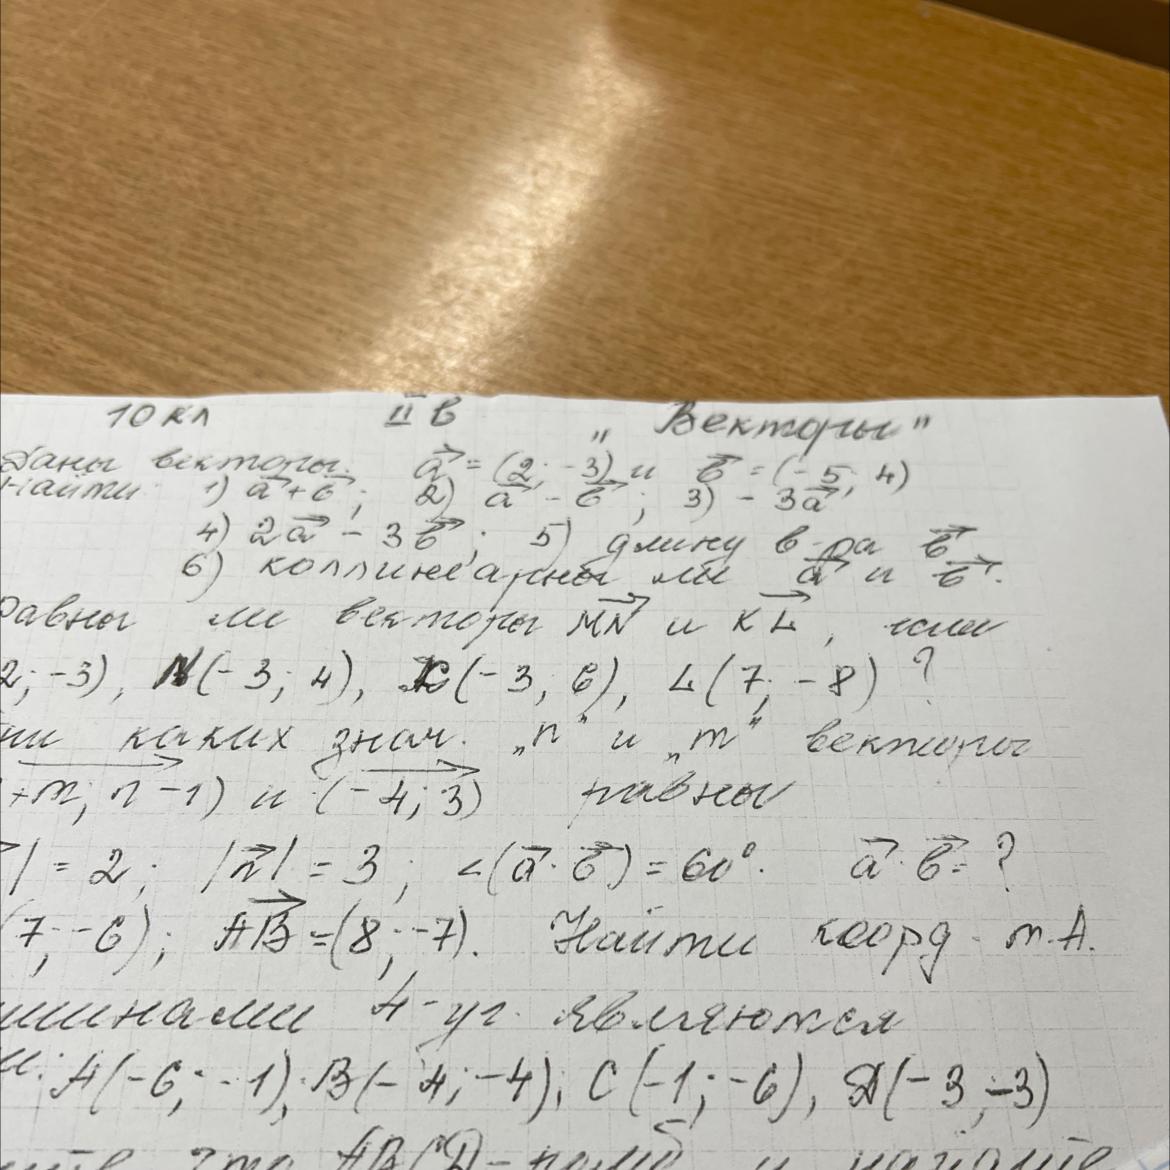 10 кл II в „Векторы"
Даны векторы. a⃗ = (2; -3) и b⃗ = (-5; 4)
Найти: 1) a⃗ + b⃗; 2) a⃗ - b⃗; 3) - 3a⃗
4) 2a⃗ - 3b⃗; 5) длину в-ра b⃗
6) коллинеарны ли a⃗ и b⃗.
Равны ли векторы MN и KL, если
2; -3), N(-3; 4), K(-3; 6), L(7; -8) ?
каких знач. „n" и „m" векторы
+m; n-1) и (-4; 3) равны
| = 2; |n⃗| = 3; ∠(a⃗ · b⃗) = 60°. a⃗ · b⃗ = ?
(7; -6); AB = (8; -7). Найти коорд. т. A.
шинами 4-уг. являются
и: A(-6; -1), B(-4; -4), C(-1; -6), D(-3; -3)
что ABCD - ромб и найдите